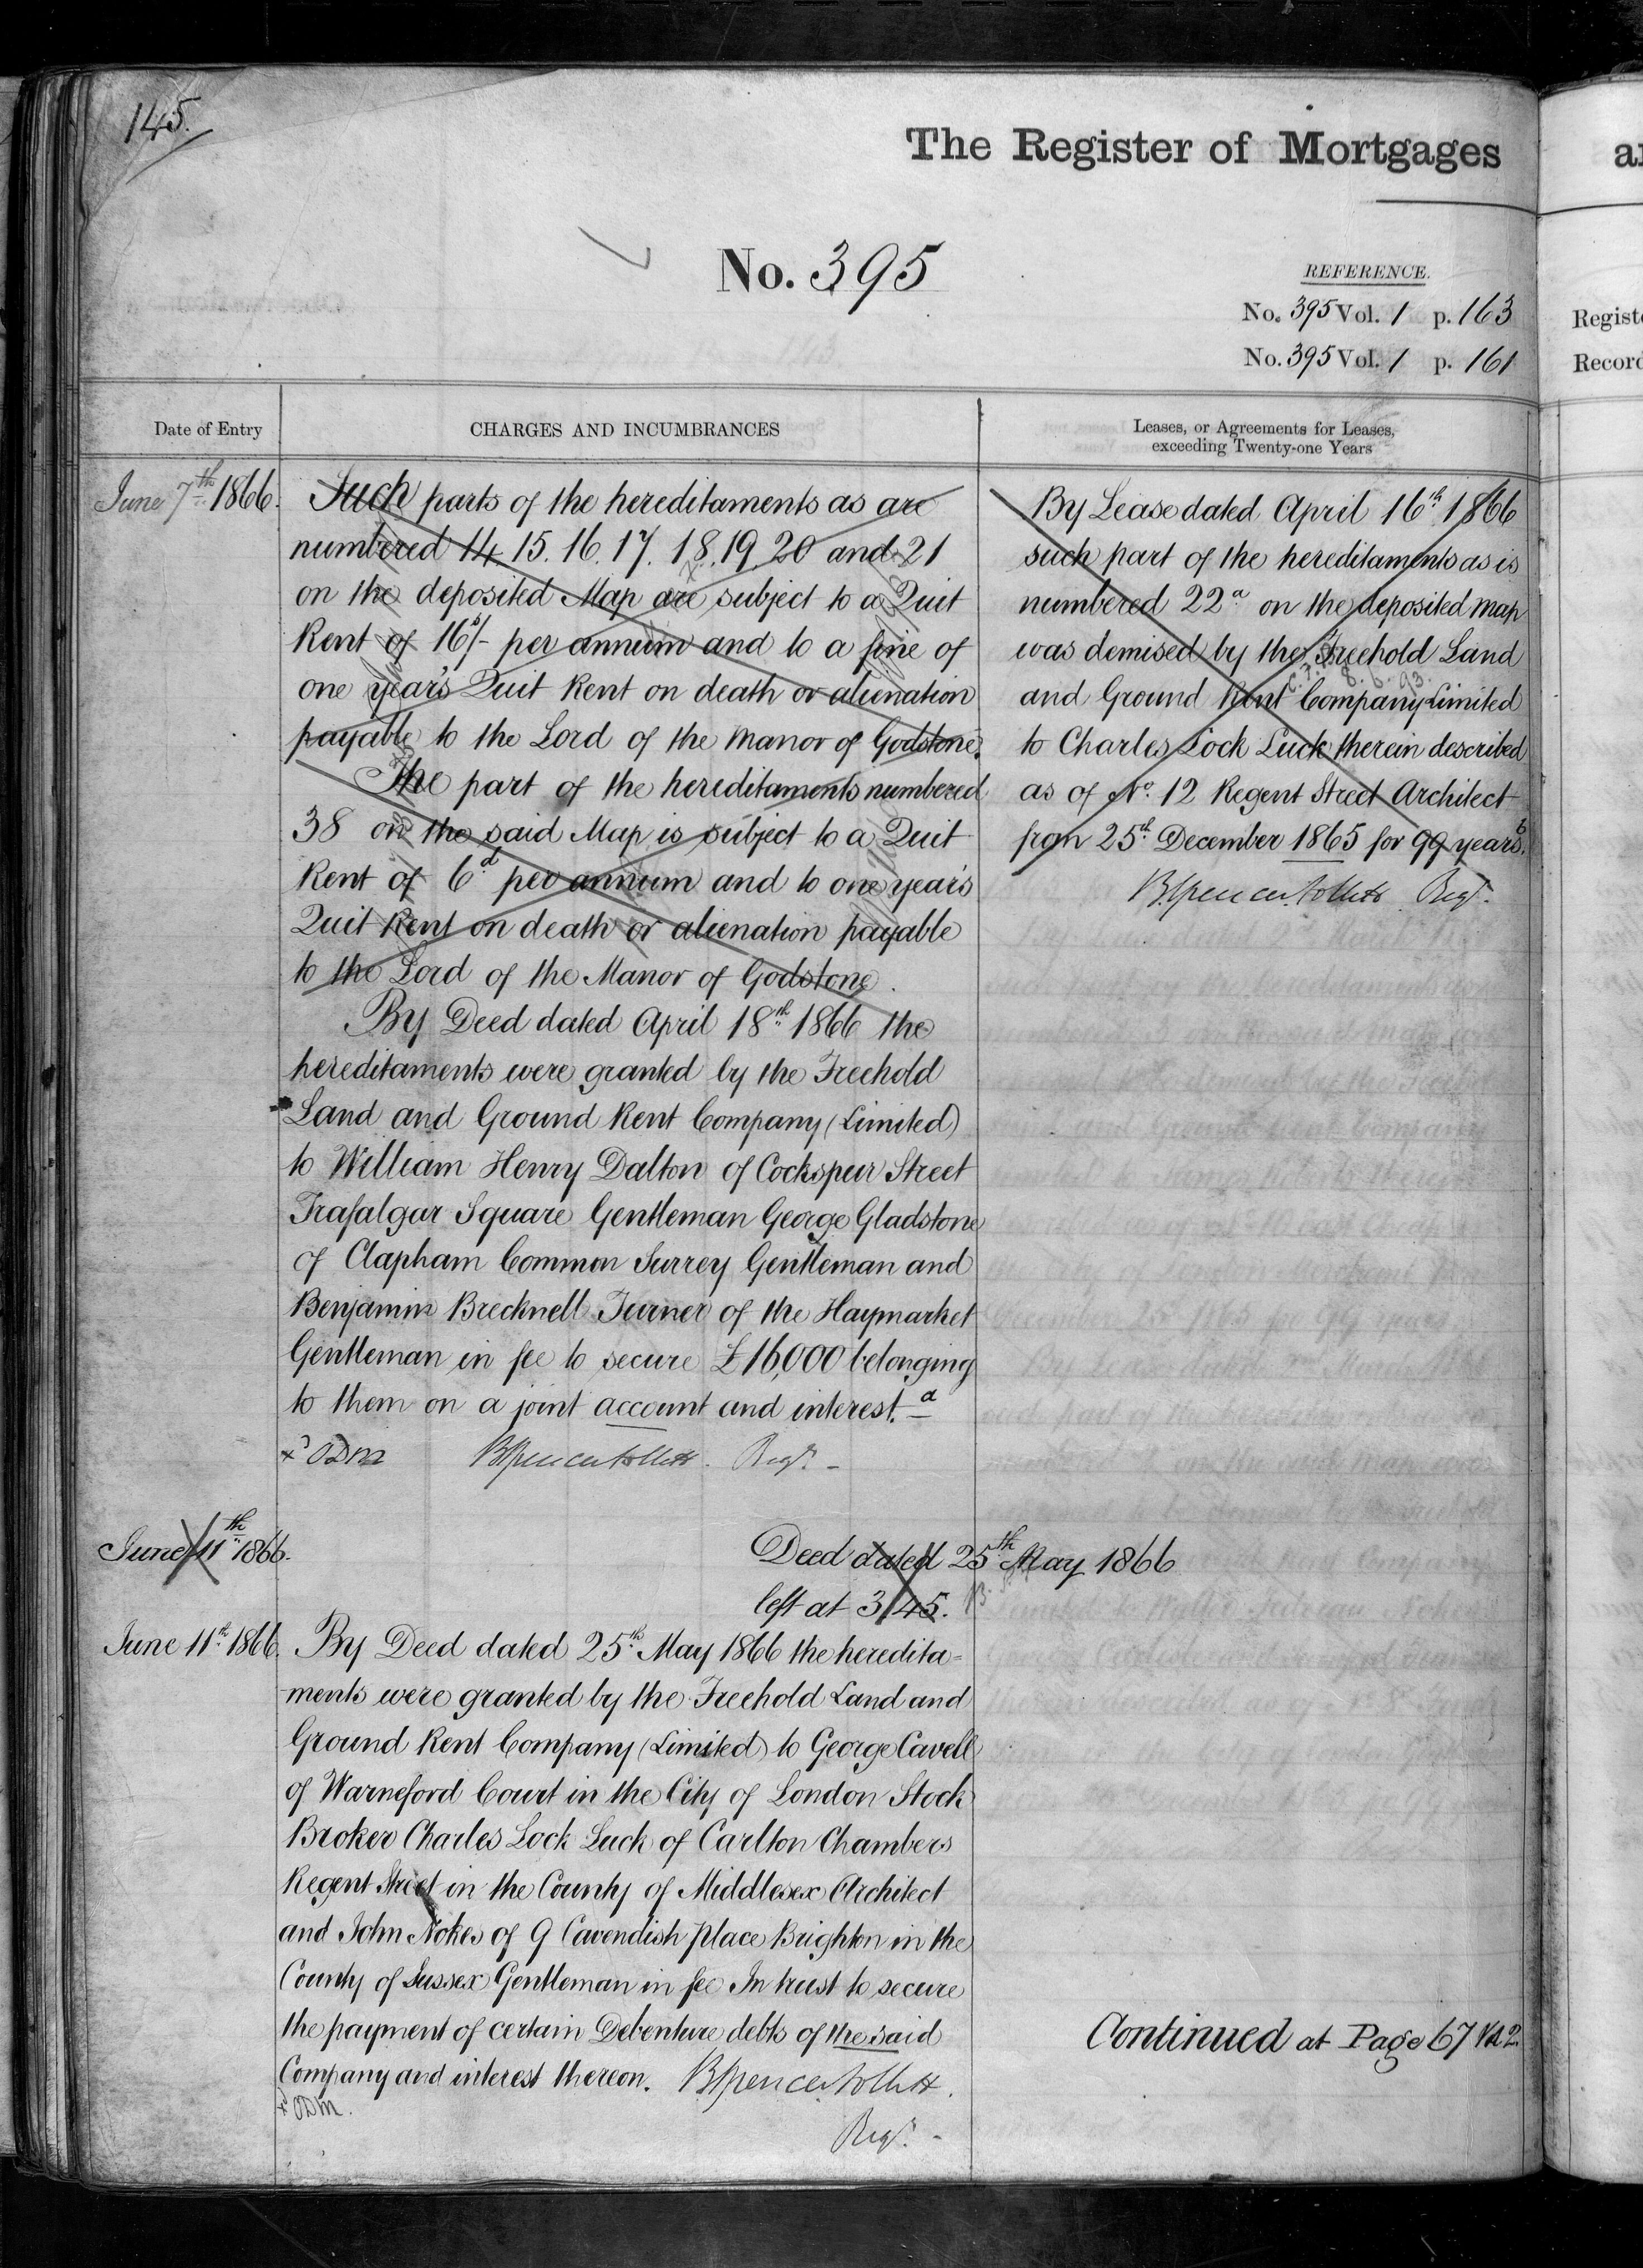 145.
The Register of Mortgages
No. 395
REFERENCE.
No. 395 Vol. 1 p. 163
No. 395 Vol. 1 p. 161
Regist
Record
Date of Entry
CHARGES AND INCUMBRANCES
Leases, or Agreements for Leases,
exceeding Twenty-one Years
June 7th 1866.
Such parts of the hereditaments as are
numbered 14. 15. 16. 17. 18. 19. 20 and 21
on the deposited Map are subject to a Quit
Rent of 16s/- per annum and to a fine of
one year's Quit Rent on death or alienation
payable to the Lord of the Manor of Godstone.
The part of the hereditaments numbered
38 on the said Map is subject to a Quit
Rent of 6d per annum and to one year's
Quit Rent on death or alienation payable
to the Lord of the Manor of Godstone.
By Deed dated April 18th 1866 the
hereditaments were granted by the Freehold
Land and Ground Rent Company (Limited)
to William Henry Dalton of Cockspur Street
Trafalgar Square Gentleman George Gladstone
of Clapham Common Surrey Gentleman and
Benjamin Brecknell Turner of the Haymarket
Gentleman in fee to secure £16,000 belonging
to them on a joint account and interest. a
x ODM BSpencer Follett. Regr. -
By Lease dated April 16th 1866
such part of the hereditaments as is
numbered 22a on the deposited map
was demised by the Freehold Land
and Ground Rent Company Limited
to Charles Lock Luck therein described
as of No. 12 Regent Street Architect
from 25th December 1865 for 99 years. b
BSpencer Follett Regr.
June 11th 1866.
Deed dated 25th May 1866
left at 3/45.
June 11th 1866.
By Deed dated 25th May 1866 the heredita=
ments were granted by the Freehold Land and
Ground Rent Company (Limited) to George Cavell
of Warneford Court in the City of London Stock
Broker Charles Lock Luck of Carlton Chambers
Regent Street in the County of Middlesex Architect
and John Nokes of 9 Cavendish Place Brighton in the
County of Sussex Gentleman in fee In trust to secure
the payment of certain Debenture debts of the said
Company and interest thereon. BSpencer Follett.
x ODM.
Regr. -
Continued at Page 67 Vol 2